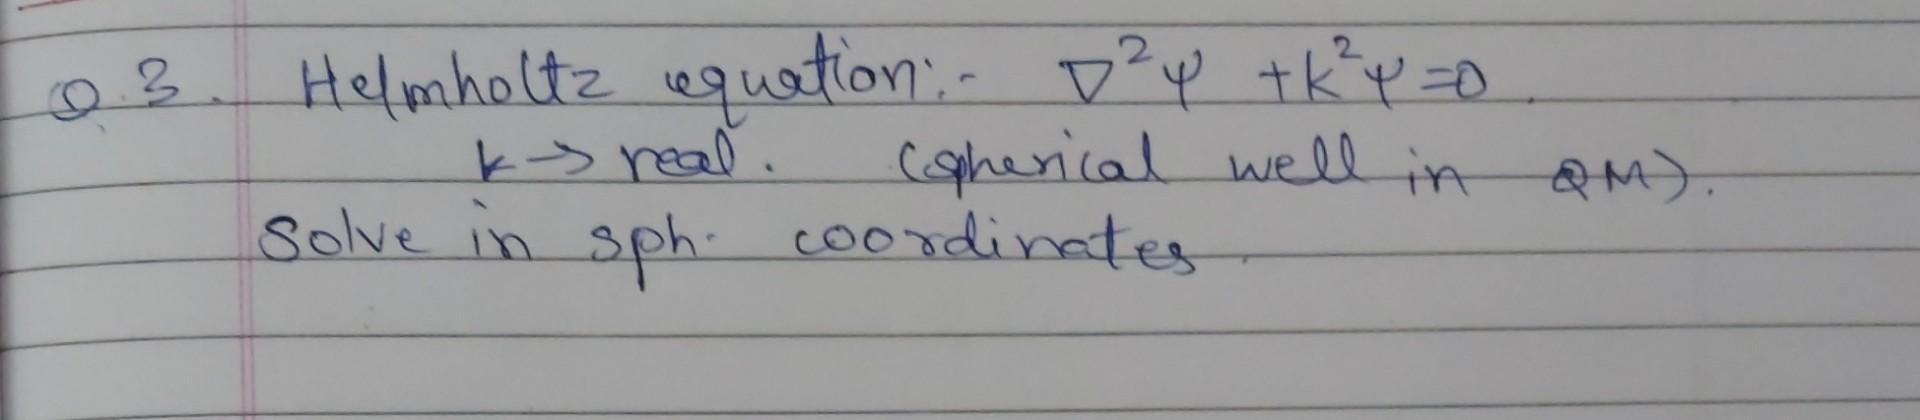 Q.3. Helmholtz equation:- ∇²ψ + k²ψ = 0.
k → real. (spherical well in QM).
Solve in sph. coordinates.